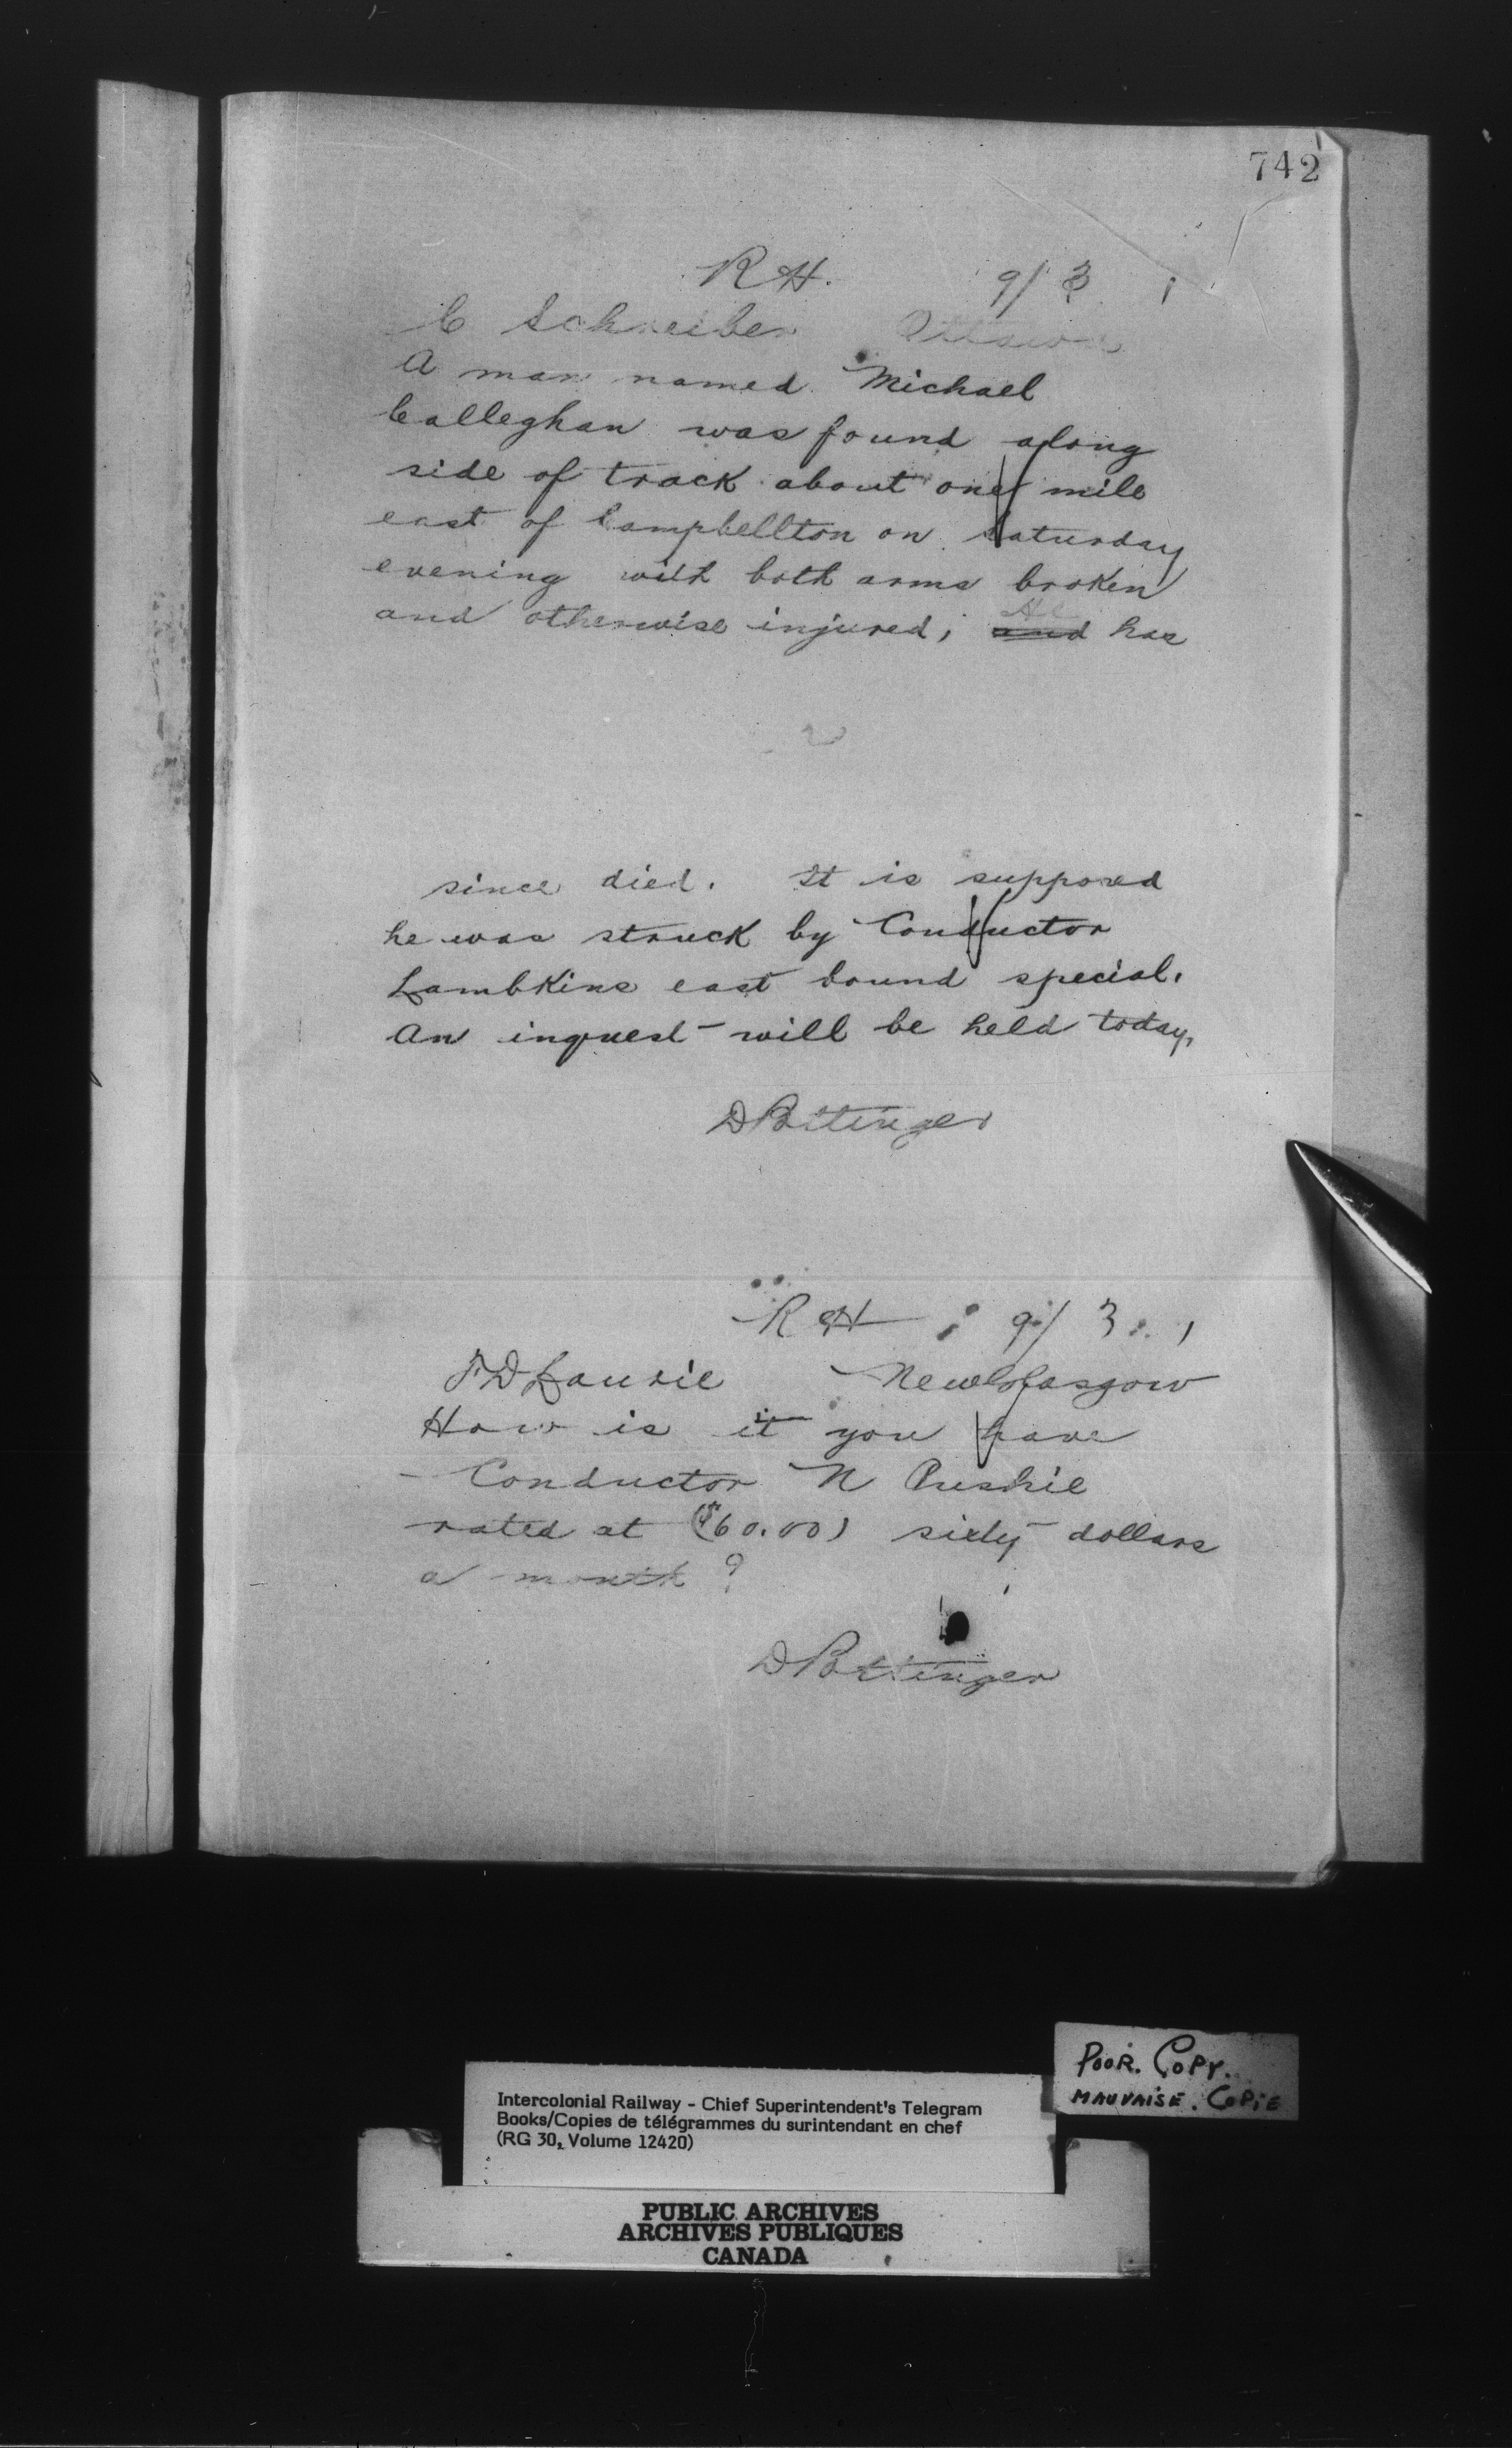 742
RH. 9/3
C Schreiber Ottawa
A man named Michael
Calleghan was found along
side of track about one mile
east of Campbellton on Saturday
evening with both arms broken
and otherwise injured, and He has
2
since died. It is supposed
he was struck by Conductor
Lambkins east bound special.
An inquest will be held today.
D Pottinger
RH 9/3
T D Laurie New Glasgow
How is it you have
Conductor N
rated at ($60.00) sixty dollars
a month?
D Pottinger
POOR. COPY.
MAUVAISE. COPIE
Intercolonial Railway - Chief Superintendent's Telegram
Books/Copies de télégrammes du surintendant en chef
(RG 30, Volume 12420)
PUBLIC ARCHIVES
ARCHIVES PUBLIQUES
CANADA